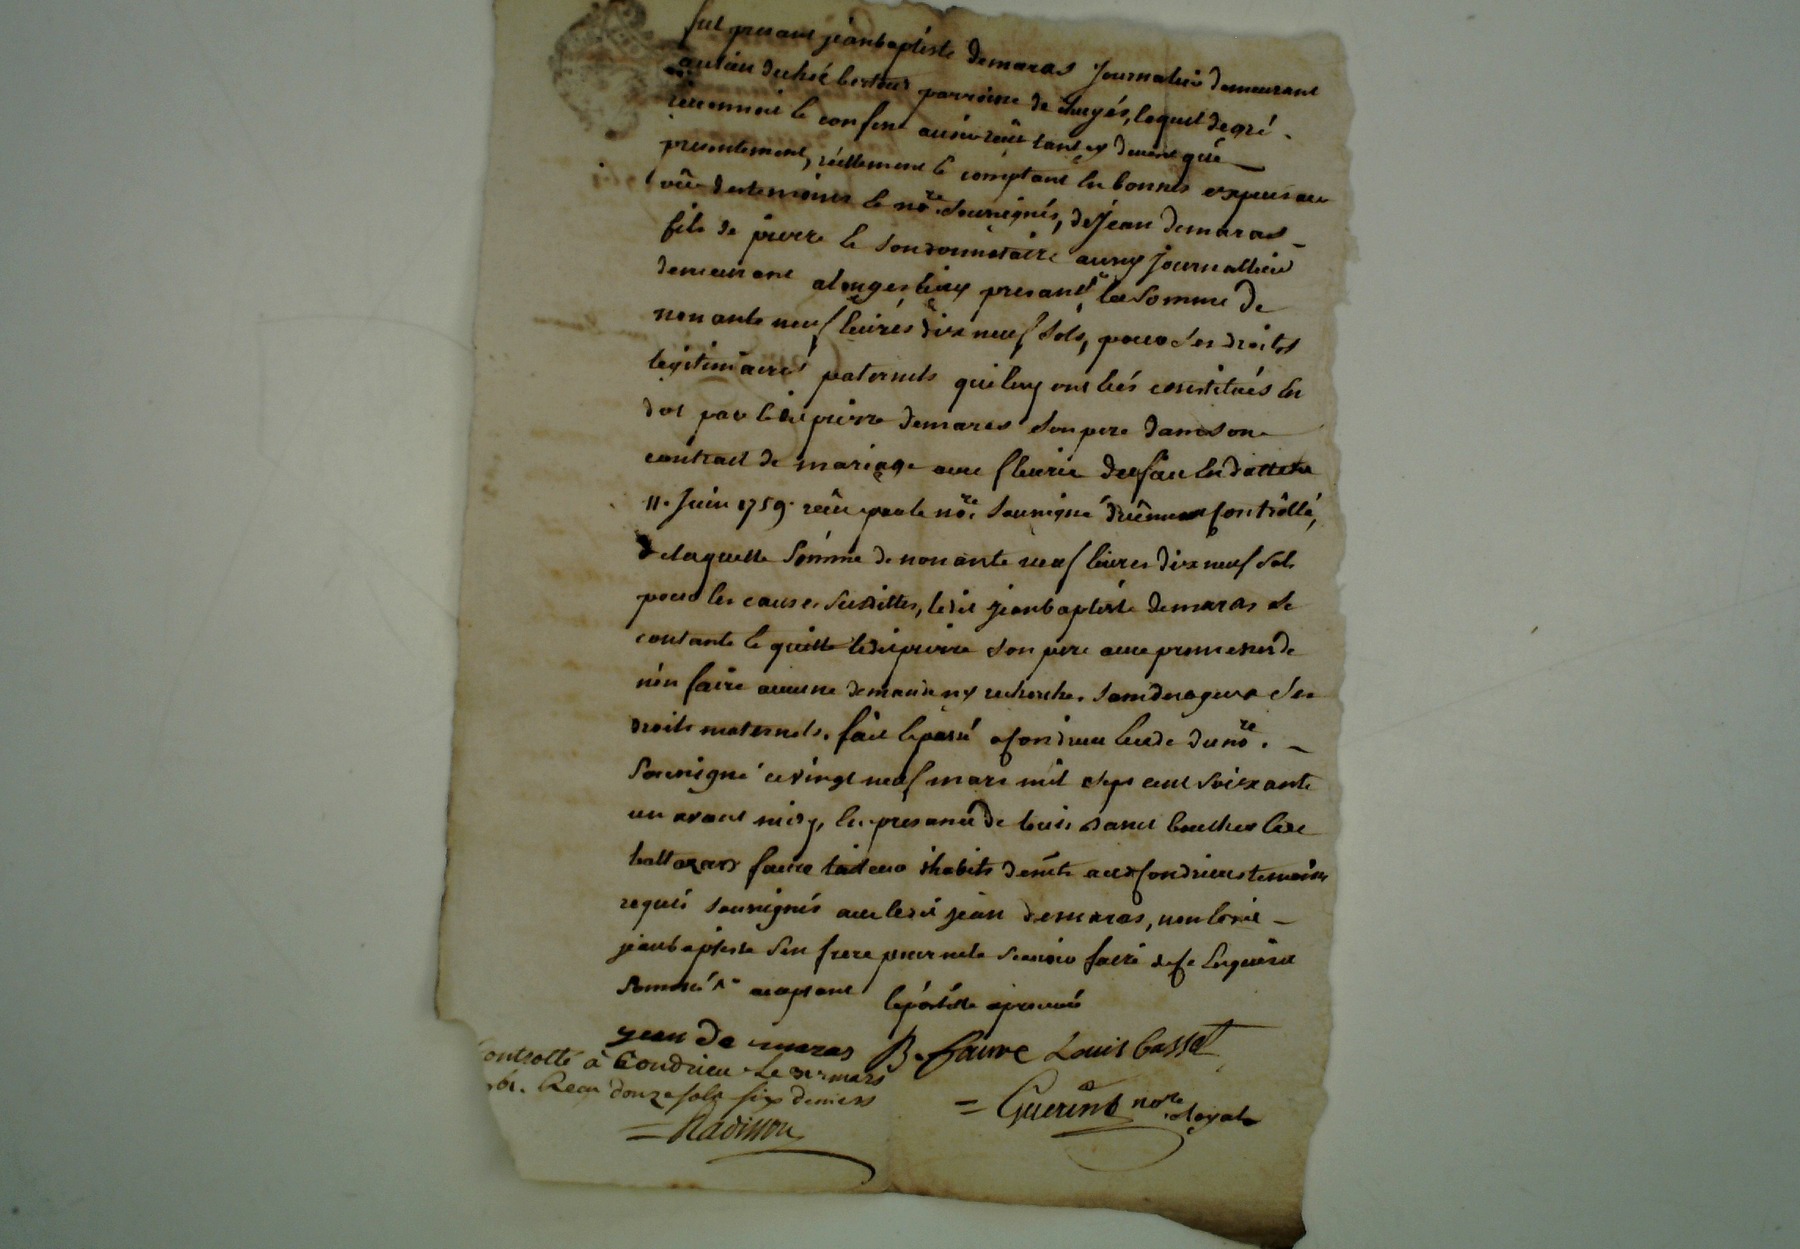 fut presant jeanbaptiste demaras Journalier demeurant
au lieu de chez bertoud parroisse de chuyés, lequel de gré
reconnoit & confesse avoir reçu tant cy devant que
presentement, réellement & comptant en bonnes especes au
vûe des temoins & no.re soussignés, de Jean demaras
fils de pierre & son donnataire aussy Journallier
demeurant a longes icy presant la somme de
nonante neuf livres dix neuf sols, pour ses droits
legitimaires paternels qui luy ont étés constitués en
dot par ledit pierre demaras son pere dans son
contract de mariage avec fleurie dufau en datte du
11. Juin 1759. reçu par le no.re soussigné duëment controllé,
de laquelle somme de nonante neuf livres dix neuf sols
pour les causes susdittes, ledit jeanbaptiste demaras se
contante & quitte ledit pierre son pere avec promesses de
n'en faire aucune demande ny recherche, sans deroger a ses
droits maternels. fait & passé a condrieu etude du no.re
soussigné ce vingt neuf mars mil sept cent soixante
un avant midy, en presance de louis basset boucher & de
baltazard faure tailleur habitants audit condrieu temoins
requis soussignés avec ledit jean demaras, non ledit
jeanbaptiste son frere pour ne le sçavoir faire de ce enquis et
sommé acaptant
jean de maras B. faure Louis basset
Controllé à Condrieu le 31 mars
61. Reçu douze sols six deniers
= Guerin no.re Royal
= Radisson